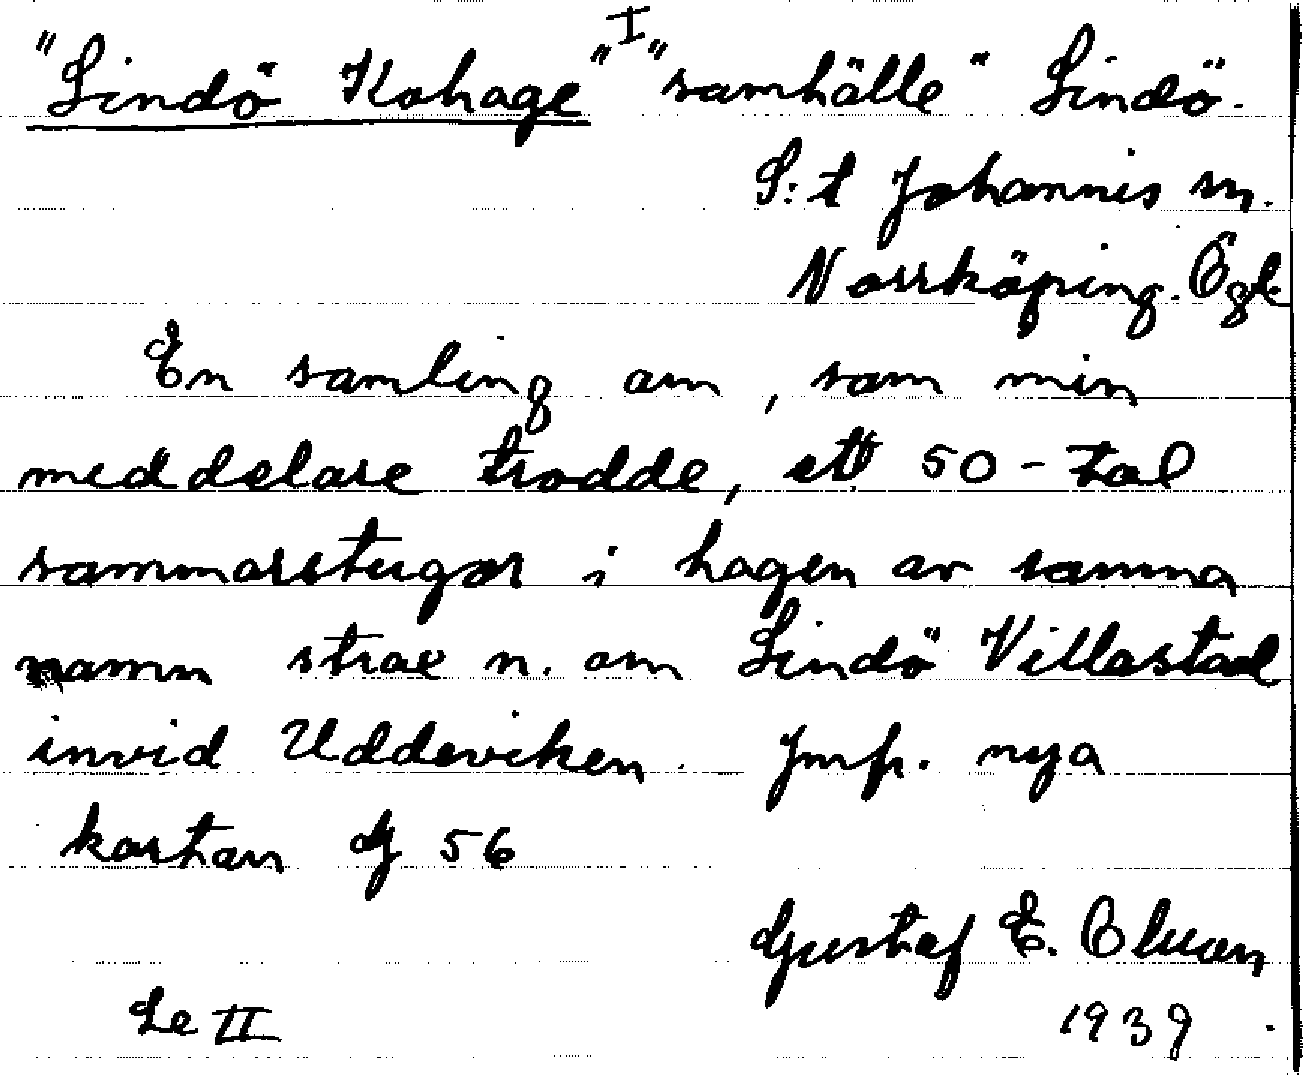 "Lindö Kohage" I "samhälle" Lindö.
S:t Johannis sn.
Norrköping. Ögl
En samling om, som min
meddelare trodde, ett 50-tal
sommarstugor i hagen av samma
namn strax n. om Lindö Villastad
invid Uddeviken. Jmfr. nya
kartan G 56
Gustaf E. Olsson
Le II 1939